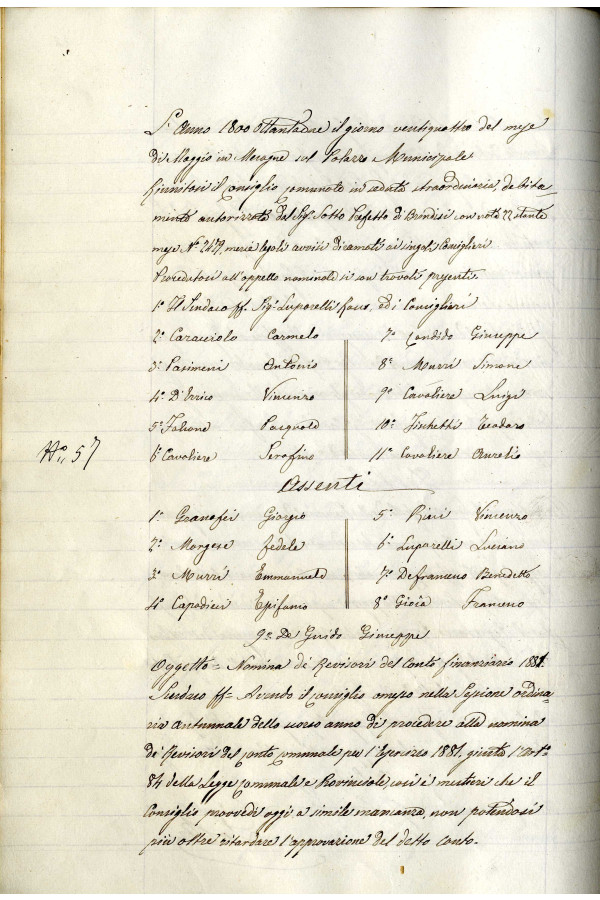 L'Anno 1800 Ottantadue il giorno ventiquattro del mese
di Maggio in Mesagne sul Palazzo Municipale
Riunitosi il Consiglio comunale in seduta straordinaria, debita-
mente autorizzata dal Sig. Sotto Prefetto di Brindisi con nota 22 stante
mese N° mercè legali avvisi diramati ai singoli Consiglieri
Proceditosi all'appello nominale si son trovati presenti.
1° Il Sindaco ff. Sig. Luparelli ed i Consiglieri
2° Caracciolo Carmelo 7° Candido Giuseppe
3° Pasimeni Antonio 8° Murri Simone
4° D'Errico Vincenzo 9° Cavaliere Luigi
5° Falcone Pasquale 10° Fischetti Teodoro
N° 57
6° Cavaliere Serafino 11° Cavaliere Aurelio
Assenti
1° Granafei Giorgio 5° Rini Vincenzo
2° Morgese Fedele 6° Luparelli Luciano
3° Murri Emmanuele 7° Defrancesco Benedetto
4° Capodieci Epifanio 8° Gioia Francesco
9° De Guido Giuseppe
Oggetto = Nomina di Revisori del Conto finanziario 1881.
Sindaco ff = Avendo il consiglio omesso nella Sessione ordina-
ria autunnale dello scorso anno di procedere alla nomina
dei Revisori del conto comunale per l'Esercizio 1881, giusta l'Art°
84 della Legge Comunale e Provinciale, così è mestieri che il
Consiglio provvedi oggi a simile mancanza, non potendosi
più oltre ritardare l'approvazione del detto conto.